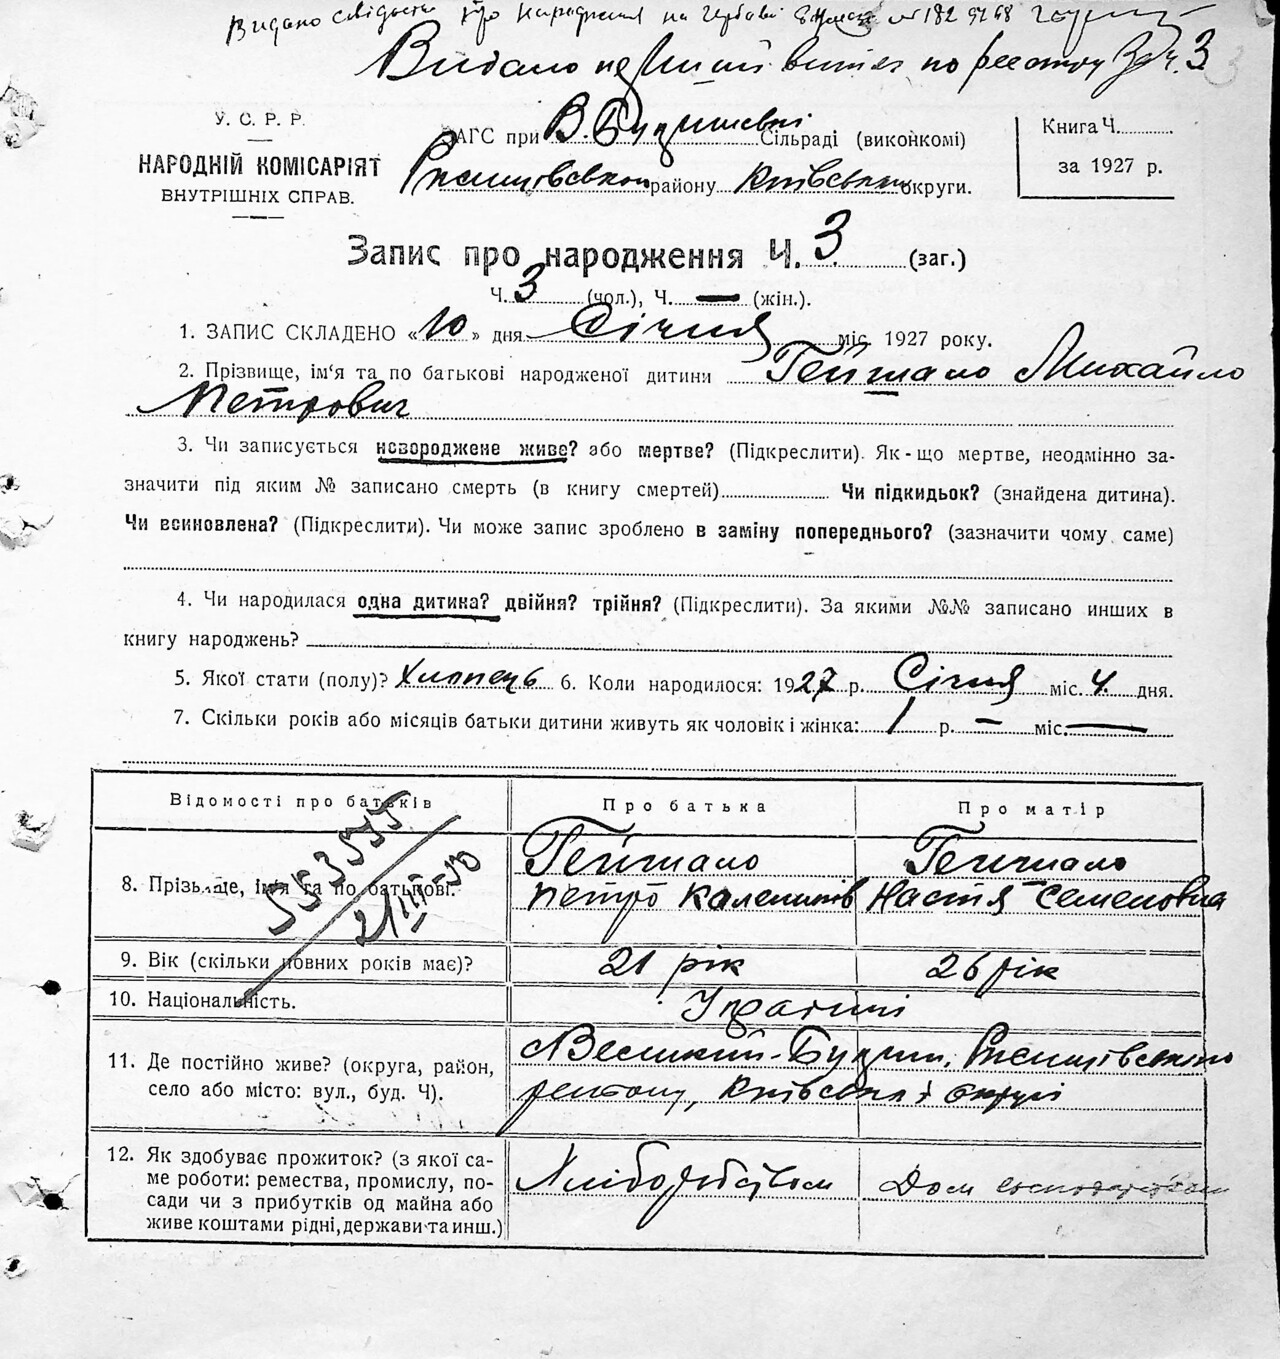 Видано свідоцтво про народження на гербовій № 182
Видано витяг по реєстру За ч. 3
У. С. Р. Р.
НАРОДНІЙ КОМІСАРІЯТ
ВНУТРІШНІХ СПРАВ.
ЗАГС при В. Будищевській Сільраді (виконкомі)
Ржищівського району Київської округи.
Книга Ч.
за 1927 р.
Запис про народження Ч. 3 (заг.)
Ч. 3 (чол.), Ч. — (жін.).
1. ЗАПИС СКЛАДЕНО «10» дня Січня міс. 1927 року.
2. Прізвище, ім'я та по багькові народженої дитини Гейшало Михайло
Петрович
3. Чи записується новороджене живе? або мертве? (Підкреслити). Як-що мертве, неодмінно за-
значити під яким № записано смерть (в книгу смертей) Чи підкидьок? (знайдена дитина).
Чи всиновлена? (Підкреслити). Чи може запис зроблено в заміну попереднього? (зазначити чому саме)
4. Чи народилася одна дитина? двійня? трійня? (Підкреслити). За якими №№ записано инших в
книгу народжень? —
5. Якої стати (полу)? Хлопець 6. Коли народилося: 1927 р. Січня міс. 4 дня.
7. Скільки років або місяців батьки дитини живуть як чоловік і жінка: 1 р. — міс. —
Відомості про батьків Про батька Про матір
8. Прізьвище, ім'я та по батькові. Гейшало Гейшало
Петро Настя Семеновна
553535
21/III-50
9. Вік (скільки повних років має)? 21 рік 26 рік
10. Національність. Українці
11. Де постійно живе? (округа, район, село або місто: вул., буд. Ч). Великий-Будищ, Ржищівського
району, Київської округи
12. Як здобуває прожиток? (з якої са-
ме роботи: ремества, промислу, по-
сади чи з прибутків од майна або
живе коштами рідні, держави та инш.)
Хліборобством Дом господарством